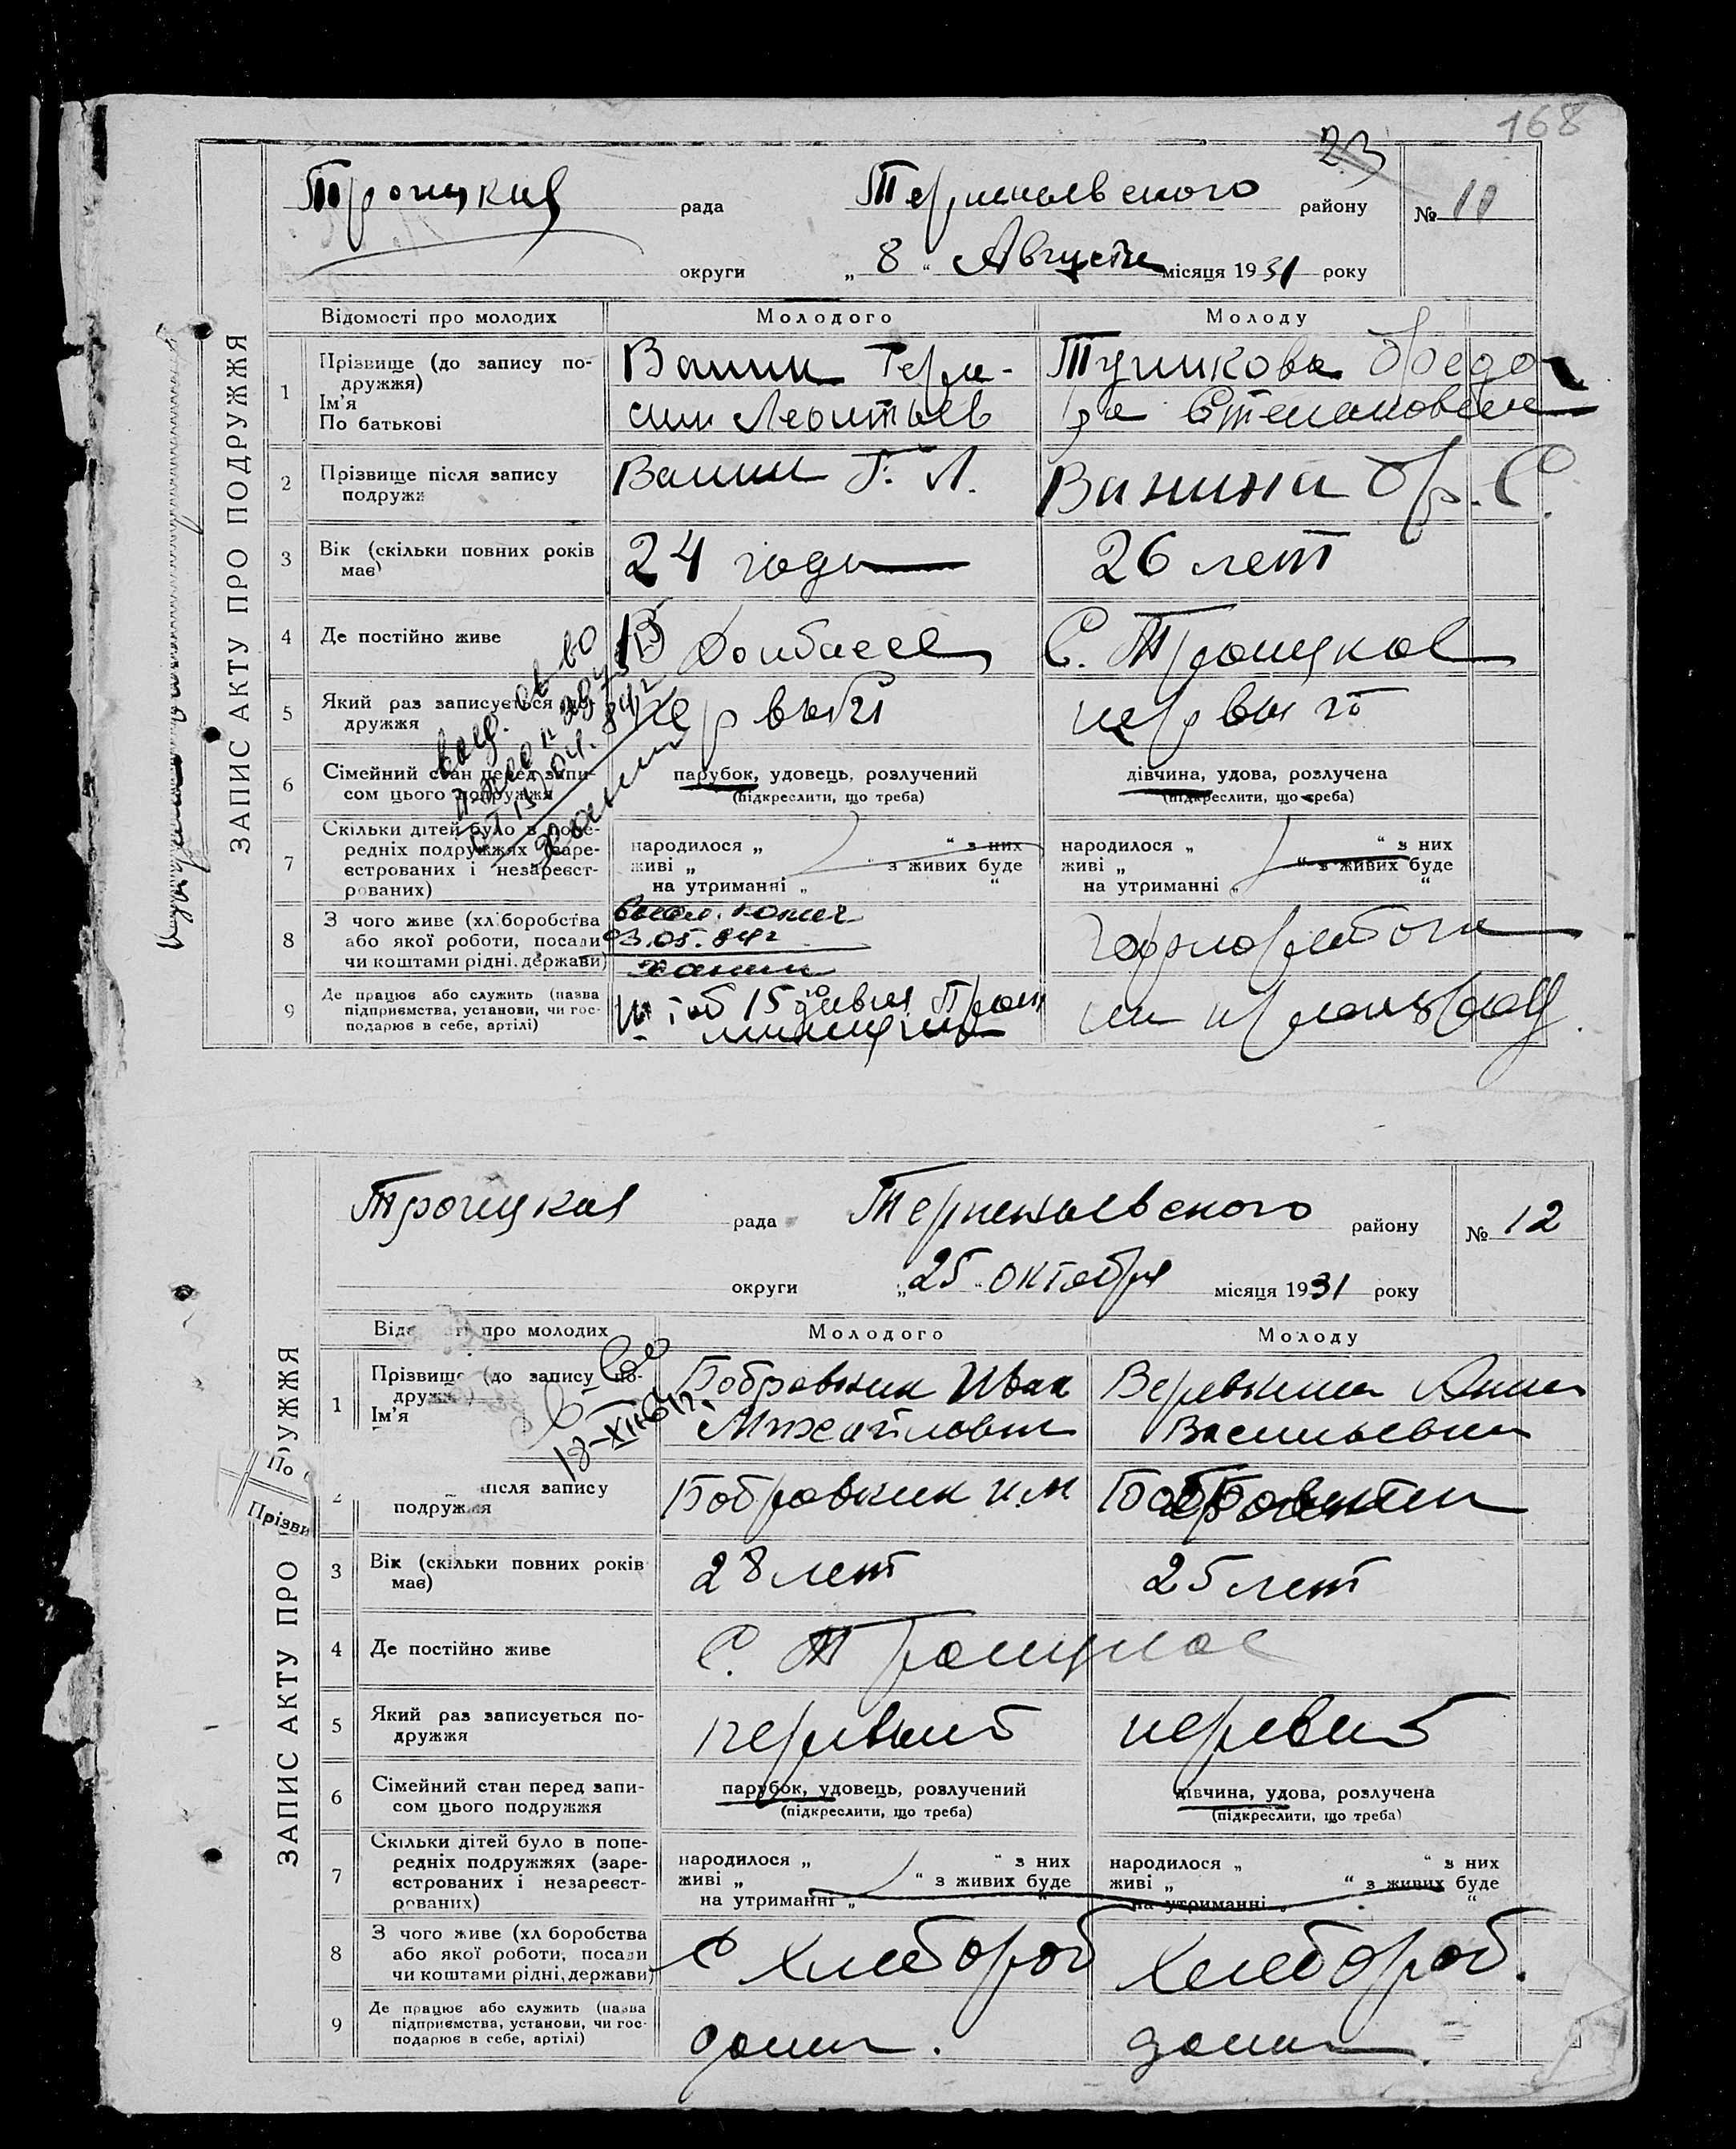 168
23
Троицкая рада Терпеньевского району № 11
округи „ 8 “ Августа місяця 1931 року
ЗАПИС АКТУ ПРО ПОДРУЖЖЯ
Відомості про молодих Молодого Молоду
1 Прізвище (до запису по-
дружжя)
Ім'я
По батькові
Ванин Гера-
сим Леонтьев
Тупикова Федо
ра Степановна
2 Прізвище після запису
подружж
Ванин Г. Л.
Ванина Ф. С.
3 Вік (скільки повних років
має)
24 года
26 лет
4 Де постійно живе
В Донбассе
С. Троицкое
5 Який раз записується по-
дружжя
первый
первый
6 Сімейний стан перед запи-
сом цього подружжя
парубок, удовець, розлучений
(підкреслити, що треба)
дівчина, удова, розлучена
(підкреслити, що треба)
7 Скільки дітей було в попе-
редніх подружжях (заре-
єстрованих і незареєст-
рованих)
народилося „ “ з них
живі „ “ з живих буде
на утриманні „ “
народилося „ “ з них
живі „ “ з живих буде
на утриманні „ “
8 З чого живе (хліборобства
або якої роботи, посади
чи коштами рідні, держави)
03.05.84г
9 Де працює або служить (назва
підприємства, установи, чи гос-
подарює в себе, артілі)
Троицкая рада Терпеньевского району № 12
округи „ 25 “ октября місяця 1931 року
ЗАПИС АКТУ ПРО РУЖЖЯ
Відо ті про молодих Молодого Молоду
18-XII-61г.
1 Прізвище (до запису по-
друж
Ім'я
Бобровник Иван
Михайлович
Веревкина Анна
Васильевна
По
Прізви
після запису
подружжя
Бобровник И.М
Бобровник
3 Вік (скільки повних років
має)
28 лет
25 лет
4 Де постійно живе
С. Троицкое
5 Який раз записується по-
дружжя
первый
первый
6 Сімейний стан перед запи-
сом цього подружжя
парубок, удовець, розлучений
(підкреслити, що треба)
дівчина, удова, розлучена
(підкреслити, що треба)
7 Скільки дітей було в попе-
редніх подружжях (заре-
єстрованих і незареєст-
рованих)
народилося „ “ з них
живі „ “ з живих буде
на утриманні „ “
народилося „ “ з них
живі „ “ з живих буде
на утриманні „ “
8 З чого живе (хліборобства
або якої роботи, посади
чи коштами рідні, держави)
С хлебороб
хлебороб.
9 Де працює або служить (назва
підприємства, установи, чи гос-
подарює в себе, артілі)
дома.
дома.